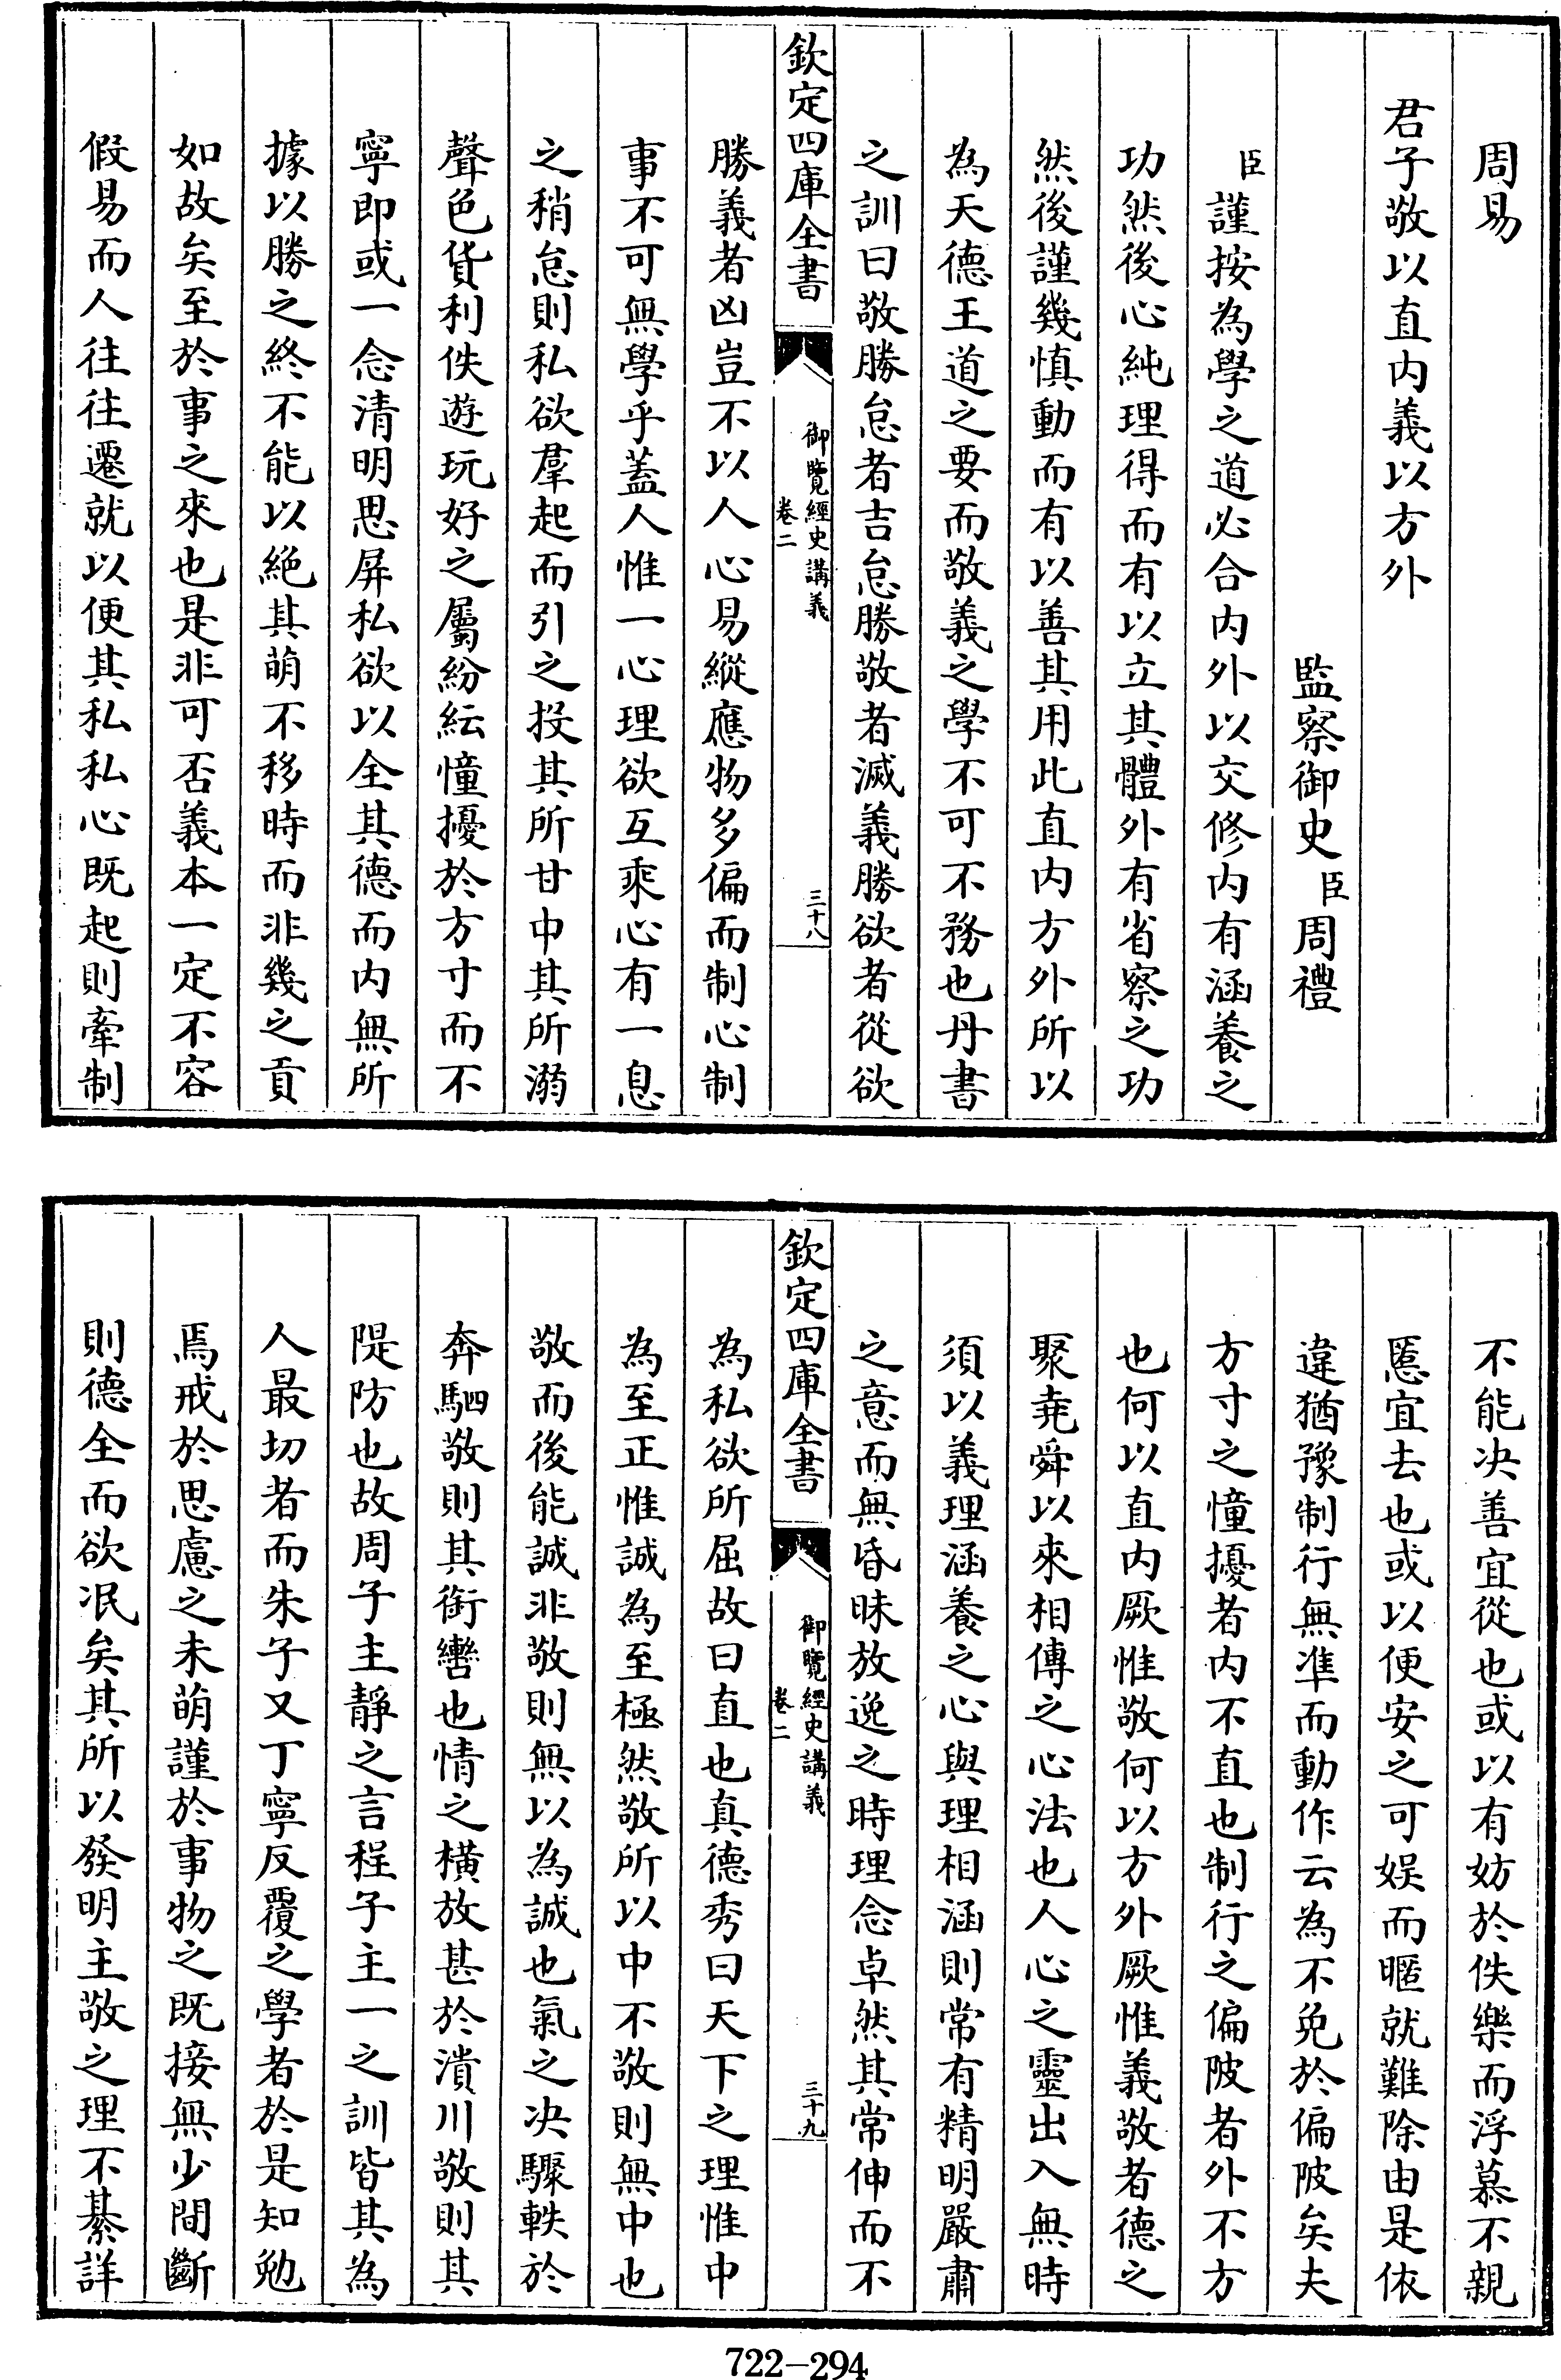 周易
君子敬以直内義以方外
監察御史臣周禮
臣謹按為學之道必合内外以交修内有涵養之
功然後心純理得而有以立其體外有省察之功
然後謹幾慎動而有以善其用此直内方外所以
為天德王道之要而敬義之學不可不務也丹書
之訓曰敬勝怠者吉怠勝敬者滅義勝欲者從欲
欽定四庫全書
御覽經史講義
卷二
三十八
勝義者凶豈不以人心易縱應物多偏而制心制
事不可無學乎蓋人惟一心理欲互乘心有一息
之稍怠則私欲羣起而引之投其所甘中其所溺
聲色貨利佚遊玩好之屬紛紜憧擾於方寸而不
寧即或一念清明思屏私欲以全其德而内無所
據以勝之終不能以絶其萌不移時而非幾之貢
如故矣至於事之來也是非可否義本一定不容
假易而人往往遷就以便其私私心既起則牽制
不能决善宜從也或以有妨於佚樂而浮慕不親
慝宜去也或以便安之可娱而暱就難除由是依
違猶豫制行無凖而動作云為不免於偏陂矣夫
方寸之憧擾者内不直也制行之偏陂者外不方
也何以直内厥惟敬何以方外厥惟義敬者德之
聚堯舜以來相傳之心法也人心之靈出入無時
須以義理涵養之心與理相涵則常有精明嚴肅
之意而無昏昧放逸之時理念卓然其常伸而不
欽定四庫全書
御覽經史講義
卷二
三十九
為私欲所屈故曰直也真德秀曰天下之理惟中
為至正惟誠為至極然敬所以中不敬則無中也
敬而後能誠非敬則無以為誠也氣之决驟軼於
奔駟敬則其銜轡也情之横放甚於潰川敬則其
隄防也故周子主靜之言程子主一之訓皆其為
人最切者而朱子又丁寧反覆之學者於是知勉
焉戒於思慮之未萌謹於事物之既接無少間斷
則德全而欲泯矣其所以發明主敬之理不綦詳
722-294